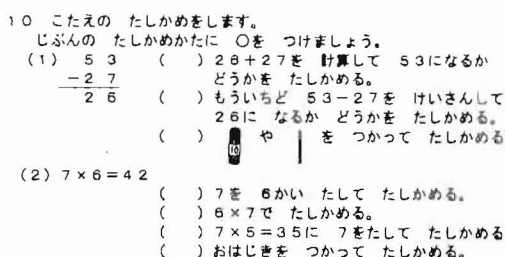 10 こたえの たしかめをします。
じぶんの たしかめかたに ○を つけましょう。
(1) 53 ( ) 26+27を 計算して 53になるか
-27 どうかを たしかめる。
26 ( ) もういちど 53-27を けいさんして
26に なるか どうかを たしかめる。
( ) 10 や を つかって たしかめる
(2) 7×6=42
( ) 7を 6かい たして たしかめる。
( ) 6×7で たしかめる。
( ) 7×5=35に 7をたして たしかめる
( ) おはじきを つかって たしかめる。